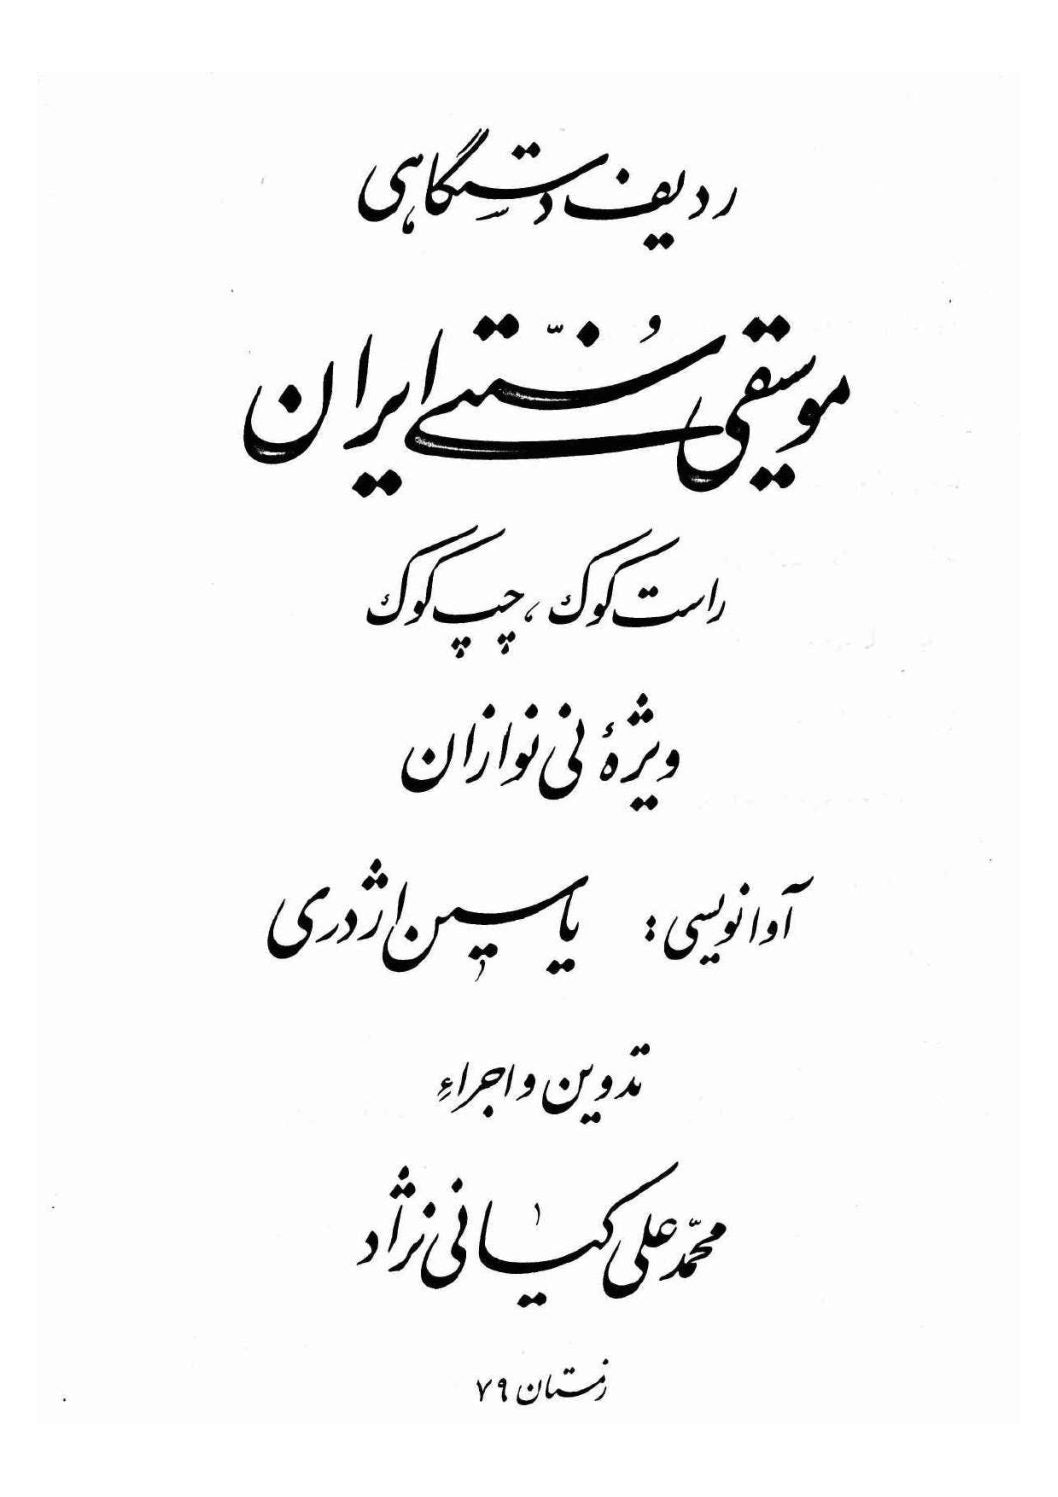 ردیف دستگاهی
موسیقی سُنّتی ایران
راست کوک ، چپ کوک
ویژهٔ نی نوازان
آوانویسی : یاسین اژدری
تدوین و اجراءِ
محمّد علی کیانی نژاد
زمستان ۷۹